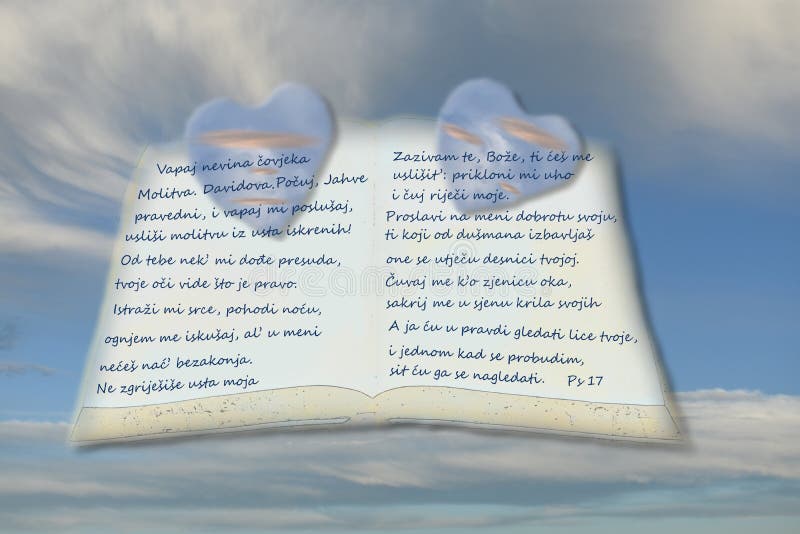 Vapaj nevina čovjeka
Molitva. Davidova.Počuj, Jahve
pravedni, i vapaj mi poslušaj,
usliši molitvu iz usta iskrenih!
Od tebe nek' mi dođe presuda,
tvoje oči vide što je pravo.
Istraži mi srce, pohodi noću,
ognjem me iskušaj, al' u meni
nećeš nać' bezakonja.
Ne zgriješiše usta moja
Zazivam te, Bože, ti ćeš me
uslišit': prikloni mi uho
i čuj riječi moje.
Proslavi na meni dobrotu svoju,
ti koji od dušmana izbavljaš
one se utječu desnici tvojoj.
Čuvaj me k'o zjenicu oka,
sakrij me u sjenu krila svojih
A ja ću u pravdi gledati lice tvoje,
i jednom kad se probudim,
sit ću ga se nagledati. Ps 17